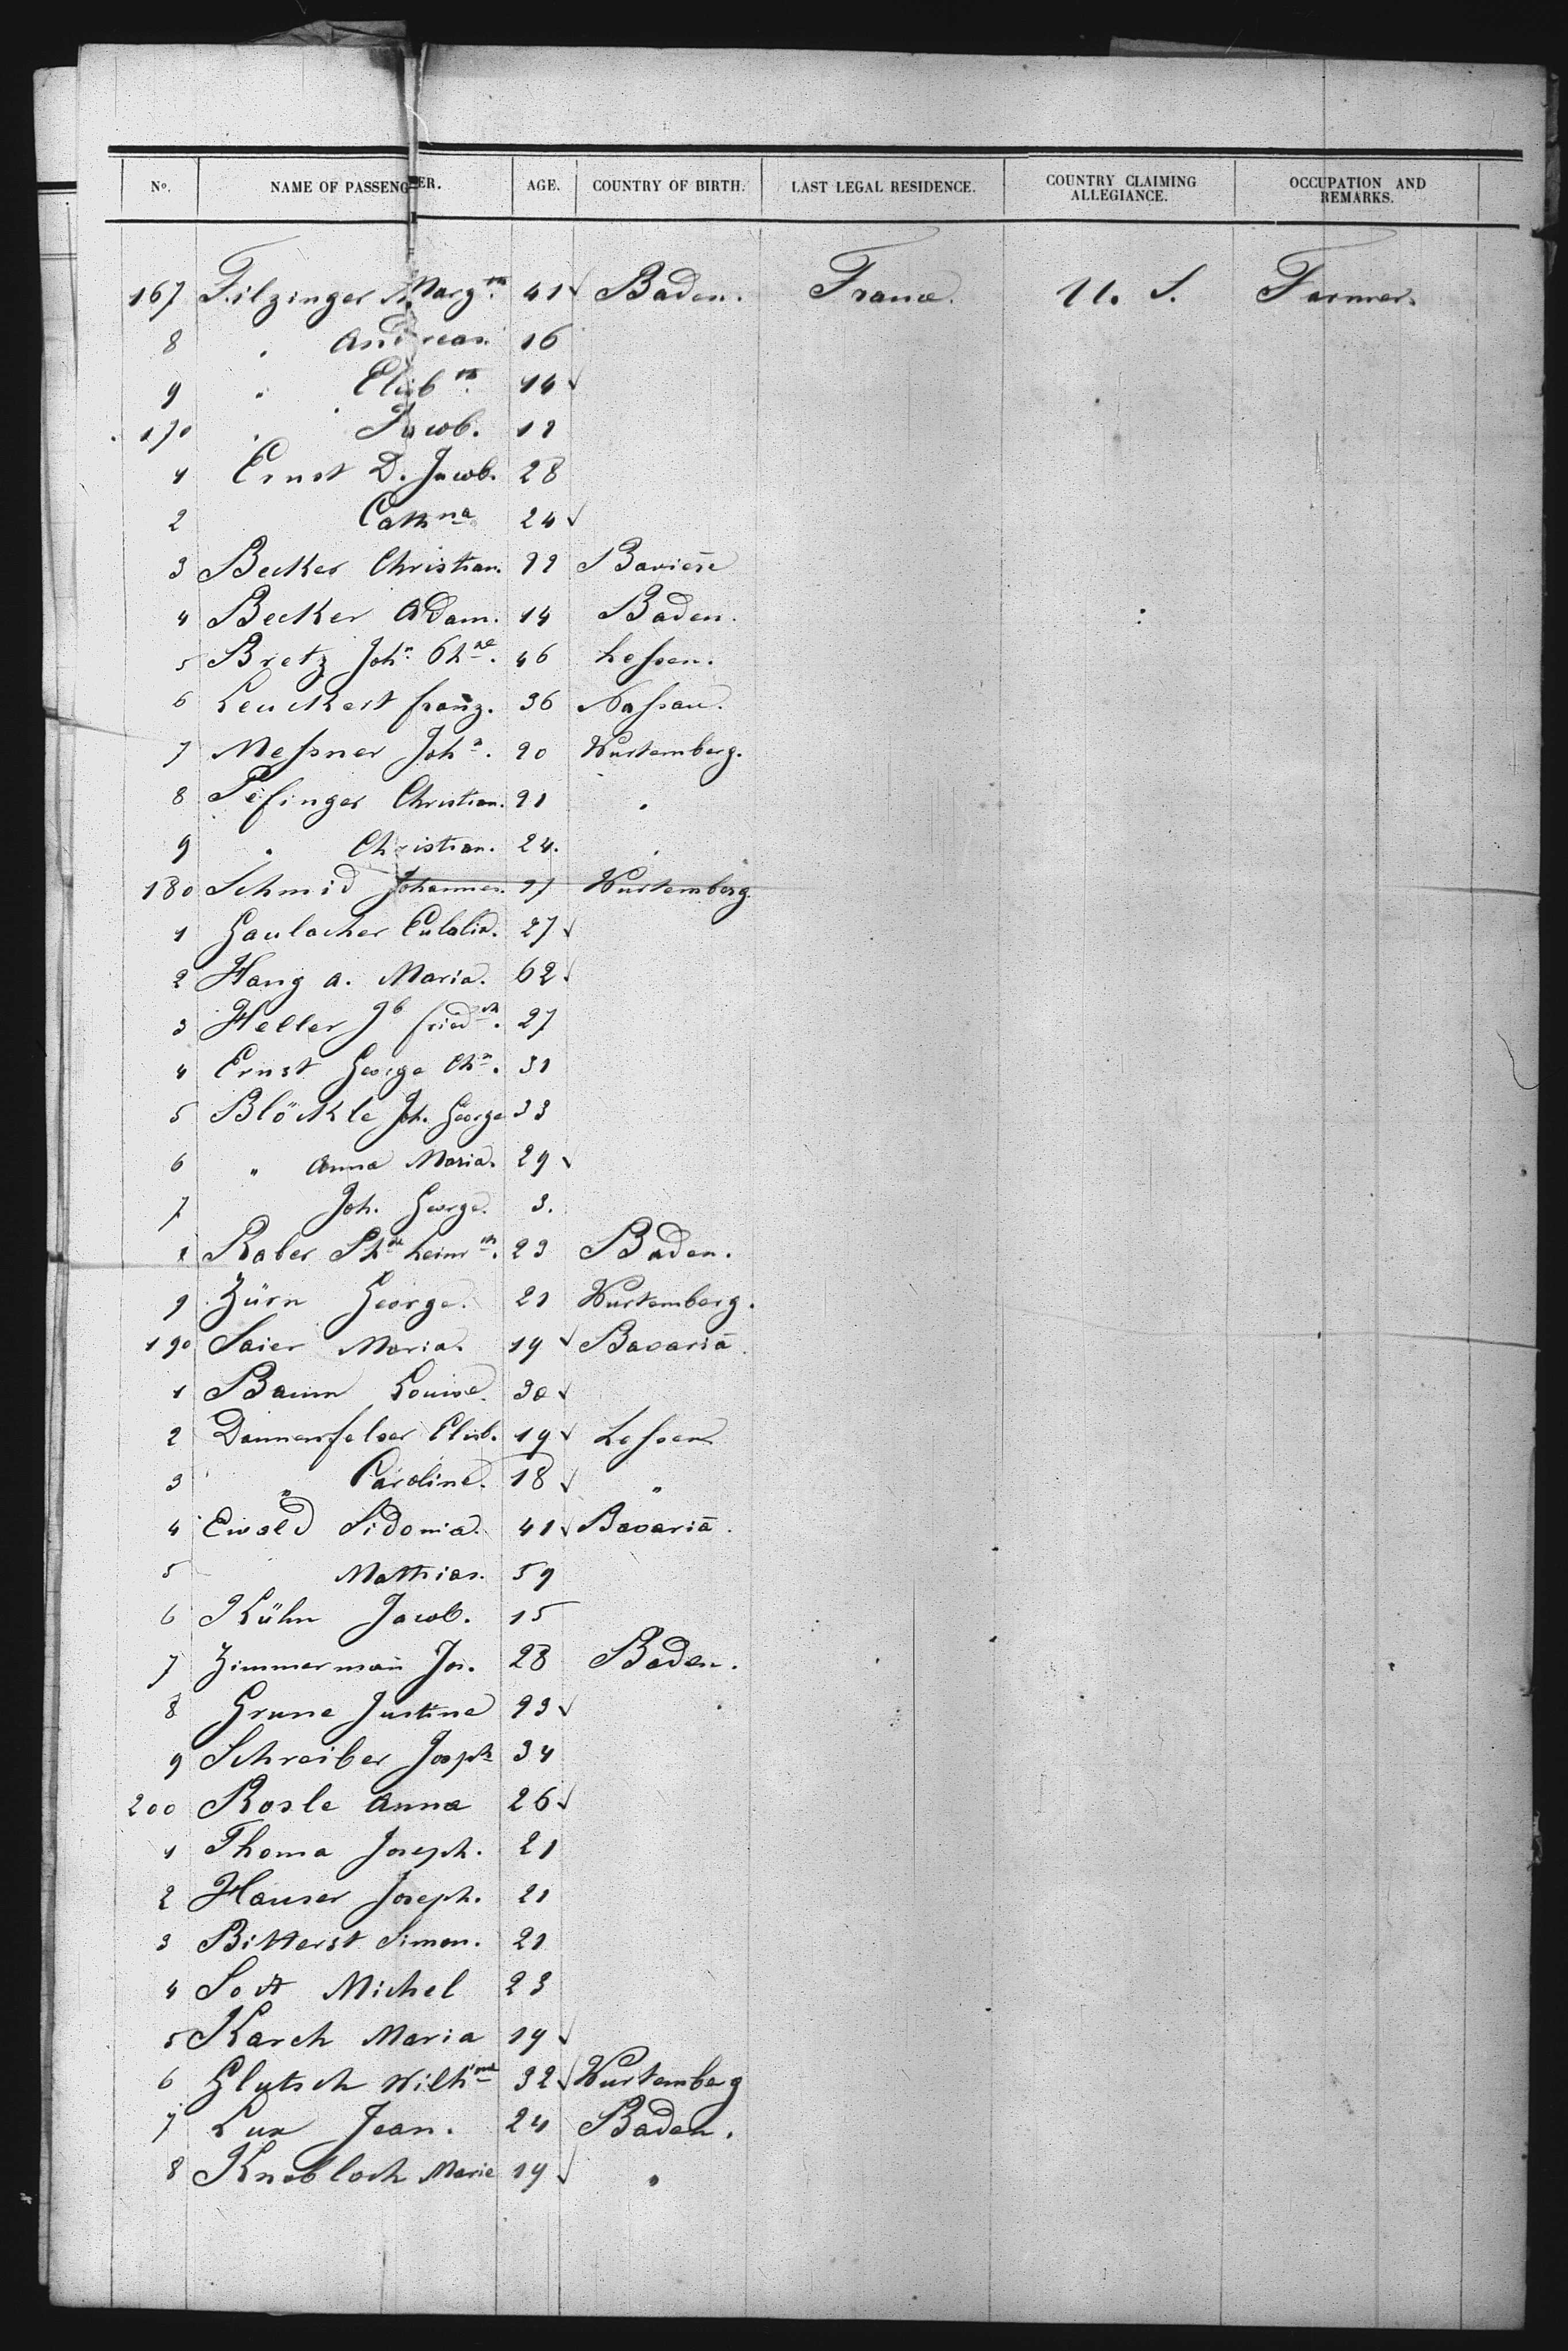 No. NAME OF PASSENGER. AGE. COUNTRY OF BIRTH. LAST LEGAL RESIDENCE. COUNTRY CLAIMING ALLEGIANCE. OCCUPATION AND REMARKS.
167 Filzinger Marg th. 41 √ Baden. France. U. S. Farmer.
8 " Andreas. 16
9 " Elisb th. 14 √
170 " Jacob. 12
1 Ernst D. Jacob. 28
2 Cath na 24 √
3 Becker Christian. 22 Baviere
4 Becker Adam. 14 Baden.
5 Bretz Joh n. 46 Hessen.
6 Leuckert franz. 36 Nassau.
7 Messner Joh s. 20 Wurtemberg.
8 Christian. 21 "
9 " Christian. 24. "
180 Schmid Johannes. 27 Wurtemberg
1 Gaulocher Eulalia. 27 √
2 Hang a. Maria. 62 √
3 Heller Jb fried ch. 27
4 Ernst George Ch n. 31
5 Blöckle Joh. George 33
6 " Anna Maria. 29 √
7 Joh. George. 3.
8 Raber heinr ch. 23 Baden.
9 Zürn George. 21 Wurtemberg.
190 Saier Maria. 19 √ Bavaria.
1 Baum Louise. 30 √
2 Dannenfelser Elisb. 19 √ Hessen
3 " Caroline. 18 √ "
4 Ewald Sidonia. 41 √ Bavaria.
5 Mathias. 59
6 Kühn Jacob. 15
7 Zimmerman Jos. 28 Baden.
8 Grune Justine 23 √
9 Schreiber Joseph 34
200 Rosle Anna 26 √
1 Thoma Joseph. 21
2 Hauser Joseph. 21
3 Bitterst Simon. 21
4 Michel 23
5 Karch Maria 19 √
6 Glutsch Wilh ne 32 √ Wurtemberg
7 Lux Jean. 24 Baden.
8 Knobloch Marie 19 √ "